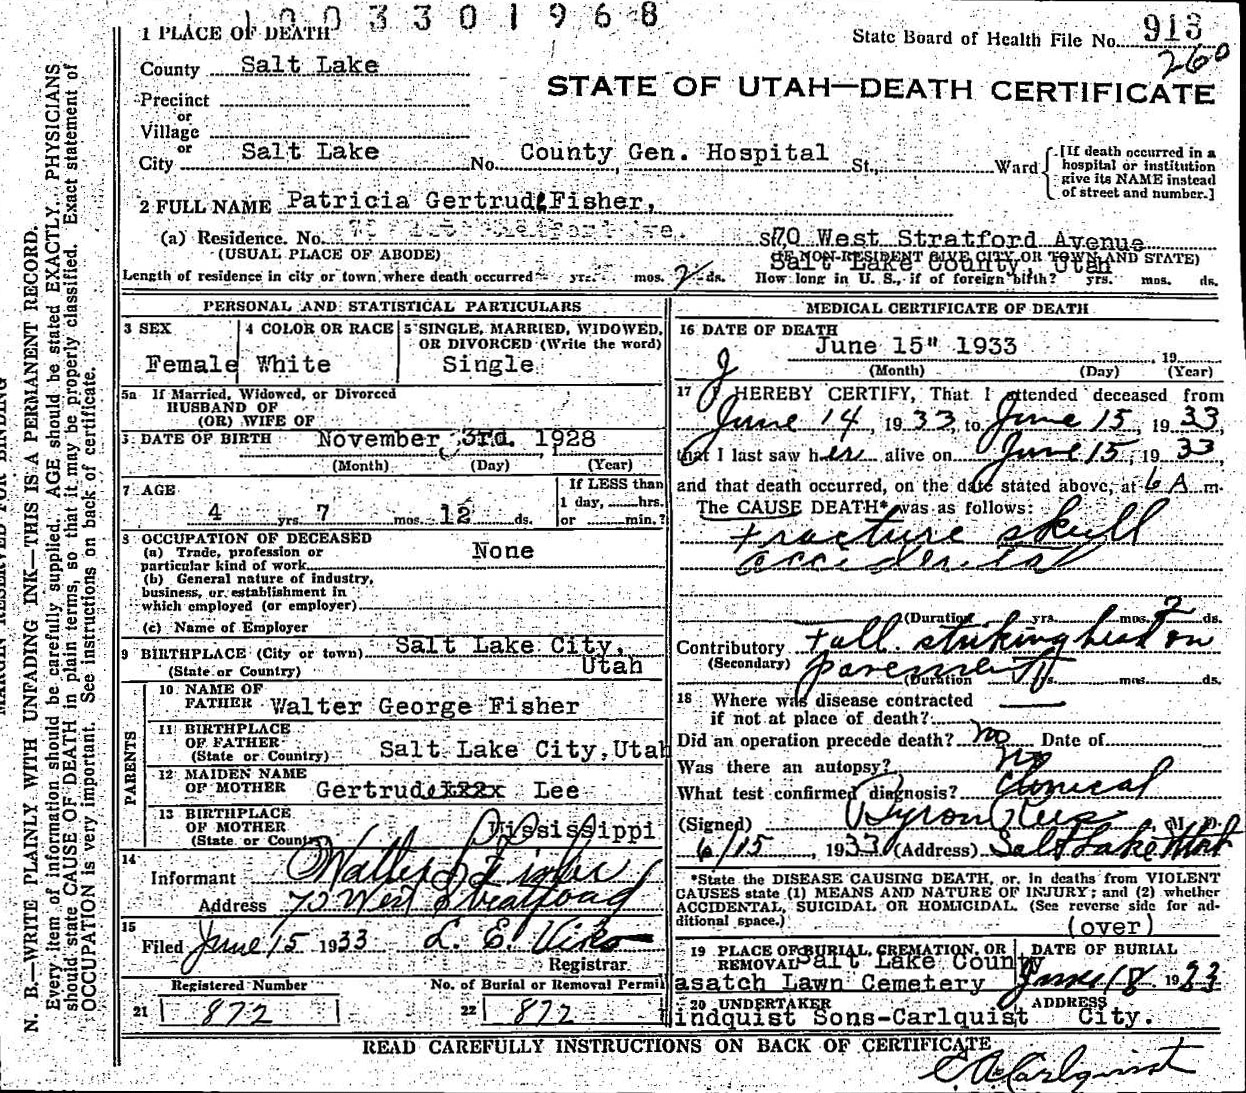 1003301968
1 PLACE OF DEATH
State Board of Health File No. 913
260
County Salt Lake
STATE OF UTAH—DEATH CERTIFICATE
Precinct
or
Village
or
City Salt Lake No. County Gen. Hospital St., Ward
[If death occurred in a
hospital or institution
give its NAME instead
of street and number.]
2 FULL NAME Patricia Gertrude Fisher,
(a) Residence. No. St. 70 West Stratford Avenue
(USUAL PLACE OF ABODE) (IF NON-RESIDENT GIVE CITY OR TOWN AND STATE)
Salt Lake County, Utah
Length of residence in city or town where death occurred yrs. mos. 2 ds. How long in U. S., if of foreign birth? yrs. mos. ds.
PERSONAL AND STATISTICAL PARTICULARS
3 SEX
Female
4 COLOR OR RACE
White
5 SINGLE, MARRIED, WIDOWED,
OR DIVORCED (Write the word)
Single
5a If Married, Widowed, or Divorced
HUSBAND OF
(OR) WIFE OF
DATE OF BIRTH November 3rd. 1928
(Month) (Day) (Year)
7 AGE
4 yrs. 7 mos. 12 ds.
If LESS than
1 day, hrs.
or min.?
8 OCCUPATION OF DECEASED
(a) Trade, profession or
particular kind of work None
(b) General nature of industry,
business, or establishment in
which employed (or employer)
(c) Name of Employer
9 BIRTHPLACE (City or town) Salt Lake City,
(State or Country) Utah
PARENTS
10 NAME OF
FATHER Walter George Fisher
11 BIRTHPLACE
OF FATHER
(State or Country) Salt Lake City, Utah
12 MAIDEN NAME
OF MOTHER Gertrude Lee
13 BIRTHPLACE
OF MOTHER
(State or Country) Mississippi
14
Informant Walter G Fisher
Address 70 West Stratford
15
Filed June 15 1933 L. E. Viko
Registrar
Registered Number
21 872
No. of Burial or Removal Permit
22 872
MEDICAL CERTIFICATE OF DEATH
16 DATE OF DEATH
June 15" 1933 19
(Month) (Day) (Year)
17 I HEREBY CERTIFY, That I attended deceased from
June 14, 1933, to June 15, 1933,
that I last saw her alive on June 15, 1933,
and that death occurred, on the date stated above, at 6 A m.
The CAUSE DEATH* was as follows:
Fracture skull
accidental
(Duration yrs. mos. 2 ds.
Contributory Fall striking head on
(Secondary) pavement
(Duration yrs. mos. ds.
18 Where was disease contracted
if not at place of death?
Did an operation precede death? no Date of
Was there an autopsy? no
What test confirmed diagnosis? Clinical
(Signed) Byron Rees M. D.
6/15, 1933 (Address) Salt Lake
*State the DISEASE CAUSING DEATH, or, in deaths from VIOLENT
CAUSES state (1) MEANS AND NATURE OF INJURY; and (2) whether
ACCIDENTAL, SUICIDAL OR HOMICIDAL. (See reverse side for ad-
ditional space.)
(over)
19 PLACE OF BURIAL, CREMATION, OR
REMOVAL Salt Lake County
asatch Lawn Cemetery
DATE OF BURIAL
June 18, 1933
20 UNDERTAKER
indquist Sons-Carlquist
ADDRESS
City.
READ CAREFULLY INSTRUCTIONS ON BACK OF CERTIFICATE
C A Carlquist
MARGIN RESERVED FOR BINDING
N. B.—WRITE PLAINLY WITH UNFADING INK—THIS IS A PERMANENT RECORD.
Every item of information should be carefully supplied. AGE should be stated EXACTLY. PHYSICIANS
should state CAUSE OF DEATH in plain terms, so that it may be properly classified. Exact statement of
OCCUPATION is very important. See instructions on back of certificate.